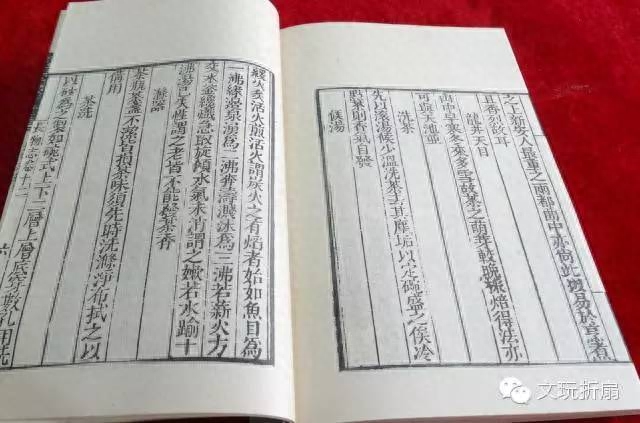 之上新安人最重之兩都曲中亦尚此以易於烹煮
且香烈故耳
龍井天目
山中早寒冬來多雪故茶之萌芽較晚採焙得法亦
可與天池並
洗茶
先以滾湯候少溫洗茶去其塵垢以定碗盛之俟冷
點茶則香氣自發
候湯
緩火炙活火煎活火謂炭火之有焰者始如魚目為
一沸緣邊泉湧為二沸奔濤濺沫為三沸若薪火方
交水釜纔熾急取旋傾水氣未消謂之嫩若水踰十
沸湯已失性謂之老皆不能發茶香
滌器
茶瓶茶盞不潔皆損茶味須先時洗滌淨布拭之以
備用
茶洗
以砂為之製如碗式上下二層上層底穿數孔用洗
長物志卷十二 六
文玩折扇